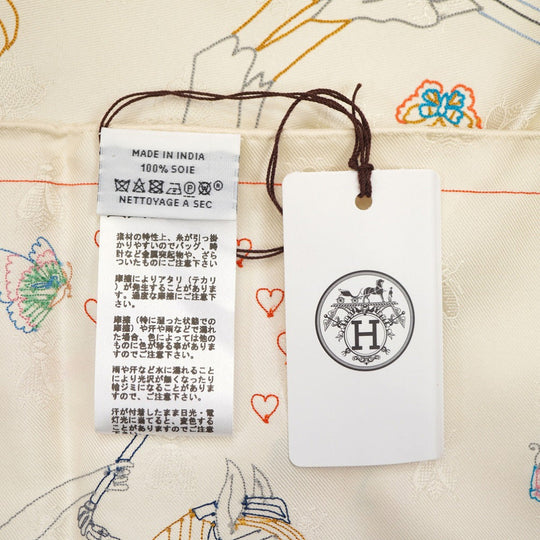 MADE IN INDIA
100% SOIE
NETTOYAGE A SEC
素材の特性上、糸が引っ掛
かりやすいのでバッグ、時
計など金属突起物や、ざら
ついたものにご注意下さい
摩擦によりアタリ（テカリ
）が発生することがありま
す。過度な摩擦にご注意下
さい。
摩擦（特に湿った状態での
摩擦）や汗や雨などで濡れ
た場合、色によっては他の
ものに色が移る事があります
のでご注意下さい
雨や汗など水に濡れること
により光沢が無くなったり
輪ジミになることがありま
すので、ご注意下さい。
汗が付着したまま日光・電
灯光に当てると、変色する
ことがありますのでご注意
下さい。
H